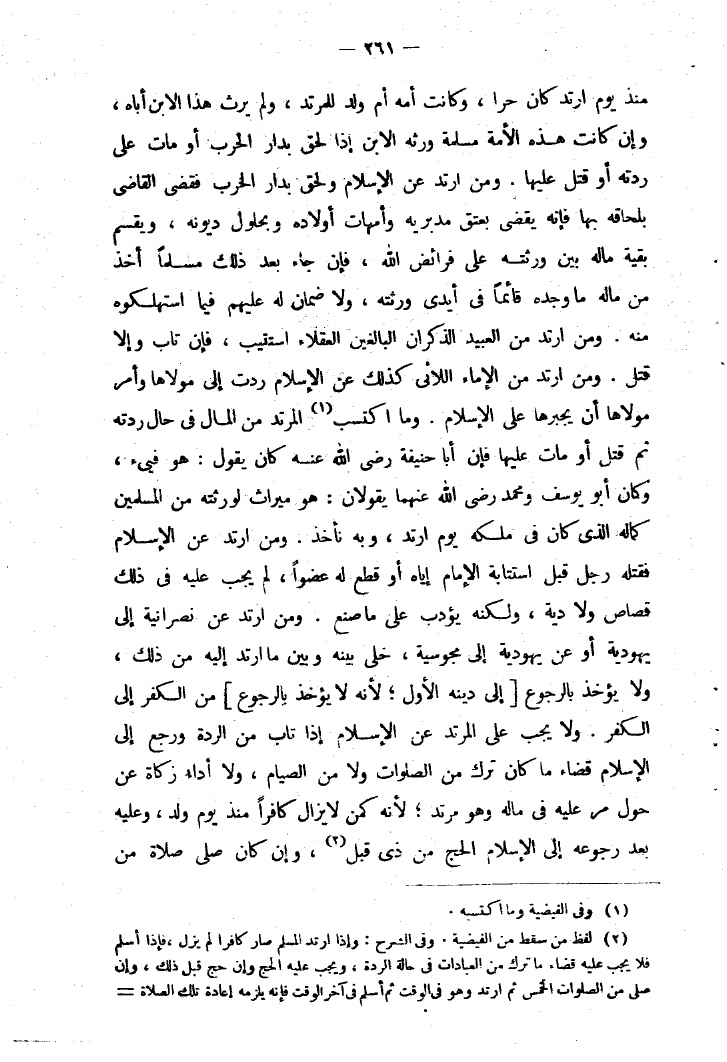 — ٢٦١ —
منذ يوم ارتد كان حرا ، وكانت أمه أم ولد للمرتد ، ولم يرث هذا الابن أباه ،
وإن كانت هذه الأمة مسلمة ورثه الابن إذا لحق بدار الحرب أو مات على
ردته أو قتل عليها . ومن ارتد عن الإسلام ولحق بدار الحرب فقضى القاضى
بلحاقه بها فإنه يقضى بعتق مدبريه وأمهات أولاده وبحلول ديونه ، ويقسم
بقية ماله بين ورثته على فرائض الله ، فإن جاء بعد ذلك مسلماً أخذ
من ماله ما وجده قائماً فى أيدى ورثته ، ولا ضمان له عليهم فيما استهلكوه
منه . ومن ارتد من العبيد الذكران البالغين العقلاء استتيب ، فإن تاب وإلا
قتل . ومن ارتد من الإماء اللائى كذلك عن الإسلام ردت إلى مولاها وأمر
مولاها أن يجبرها على الإسلام . وما اكتسب(١) المرتد من المال فى حال ردته
ثم قتل أو مات عليها فإن أبا حنيفة رضى الله عنه كان يقول : هو فيء ،
وكان أبو يوسف ومحمد رضى الله عنهما يقولان : هو ميراث لورثته من المسلمين
كماله الذى كان فى ملكه يوم ارتد ، وبه نأخذ . ومن ارتد عن الإسلام
فقتله رجل قبل استتابة الإمام إياه أو قطع له عضواً ، لم يجب عليه فى ذلك
قصاص ولا دية ، ولكنه يؤدب على ما صنع . ومن ارتد عن نصرانية إلى
يهودية أو عن يهودية إلى مجوسية ، خلى بينه وبين ما ارتد إليه من ذلك ،
ولا يؤخذ بالرجوع [ إلى دينه الأول ؛ لأنه لا يؤخذ بالرجوع ] من الكفر إلى
الكفر . ولا يجب على المرتد عن الإسلام إذا تاب من الردة ورجع إلى
الإسلام قضاء ما كان ترك من الصلوات ولا من الصيام ، ولا أداء زكاة عن
حول مر عليه فى ماله وهو مرتد ؛ لأنه كمن لا يزال كافراً منذ يوم ولد ، وعليه
بعد رجوعه إلى الإسلام الحج من ذى قبل(٢) ، وإن كان صلى صلاة من
(١) وفى الفيضية وما اكتسبه .
(٢) لفظ من سقط من الفيضية . وفى الشرح : وإذا ارتد المسلم صار كافرا لم يزل ، فإذا أسلم
فلا يجب عليه قضاء ما ترك من العبادات فى حالة الردة ، ويجب عليه الحج وإن حج قبل ذلك ، وإن
صلى من الصلوات الخمس ثم ارتد وهو فى الوقت ثم أسلم فى آخر الوقت فإنه يلزمه إعادة تلك الصلاة =